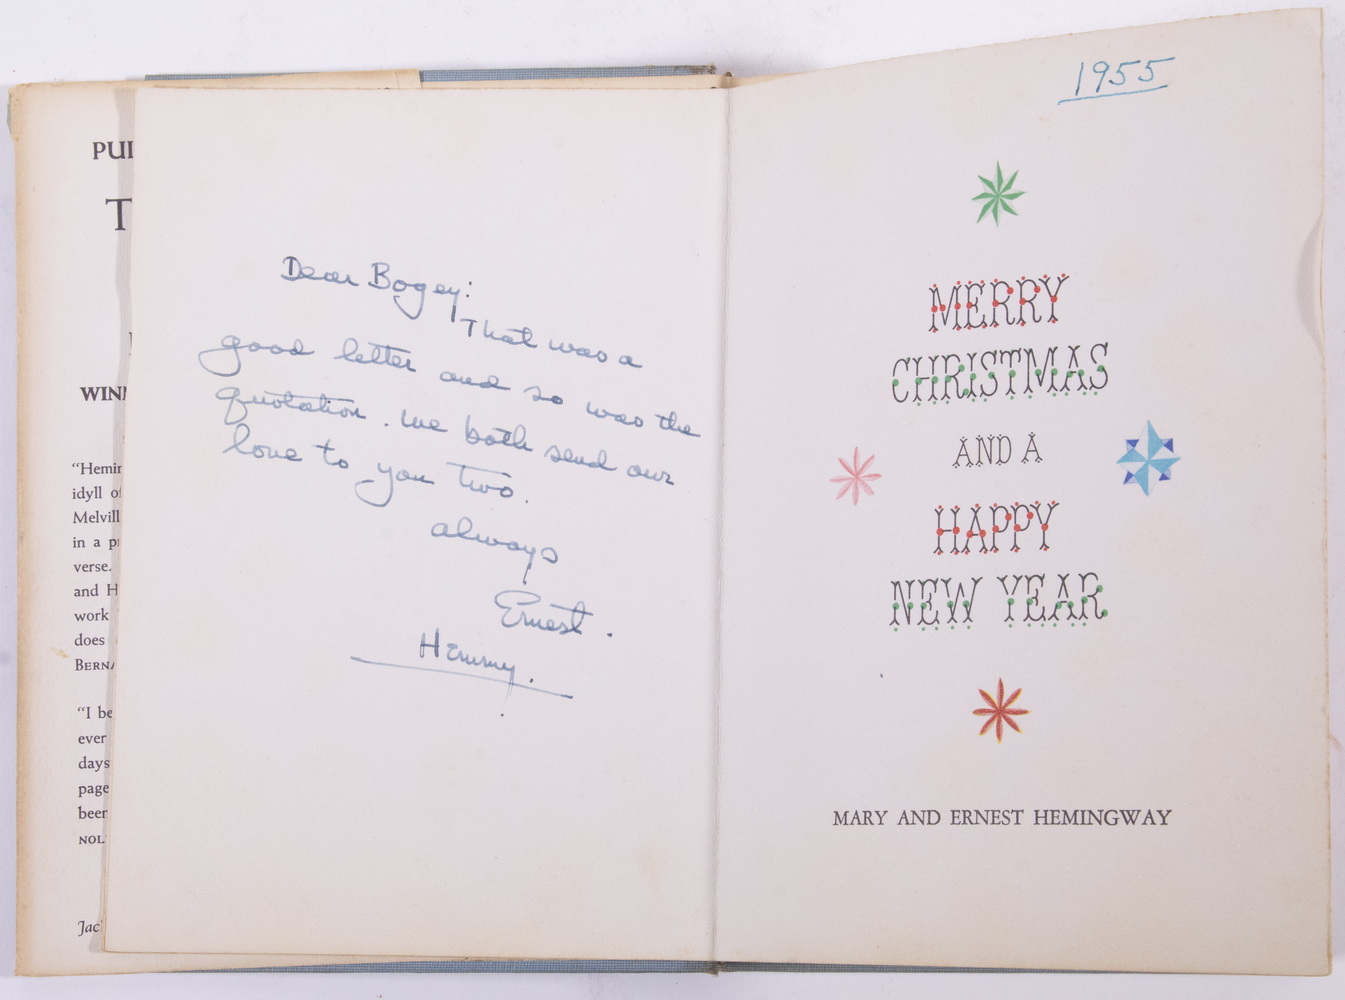 PUL
T
WINN
“Hemin
idyll of
Melvill
in a p
verse.
and H
work
does
BERNA
“I be
ever
days
page
been
NOL
Jac
Dear Bogey:
That was a
good letter and so was the
quotation. We both send our
love to you two.
always
Ernest.
Hemmy.
1955
MERRY
CHRISTMAS
AND A
HAPPY
NEW YEAR
MARY AND ERNEST HEMINGWAY